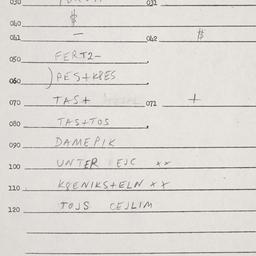 030 031
040 $
041 — 042 $
050 FERT2-
060 )PES+KPES
070 TAS+ 071 +
080 TAS+TOS
090 DAMEPIK
100 UNTER EJC xx
110 KOENIKS+ELN xx
120 TOJS CEJLIM